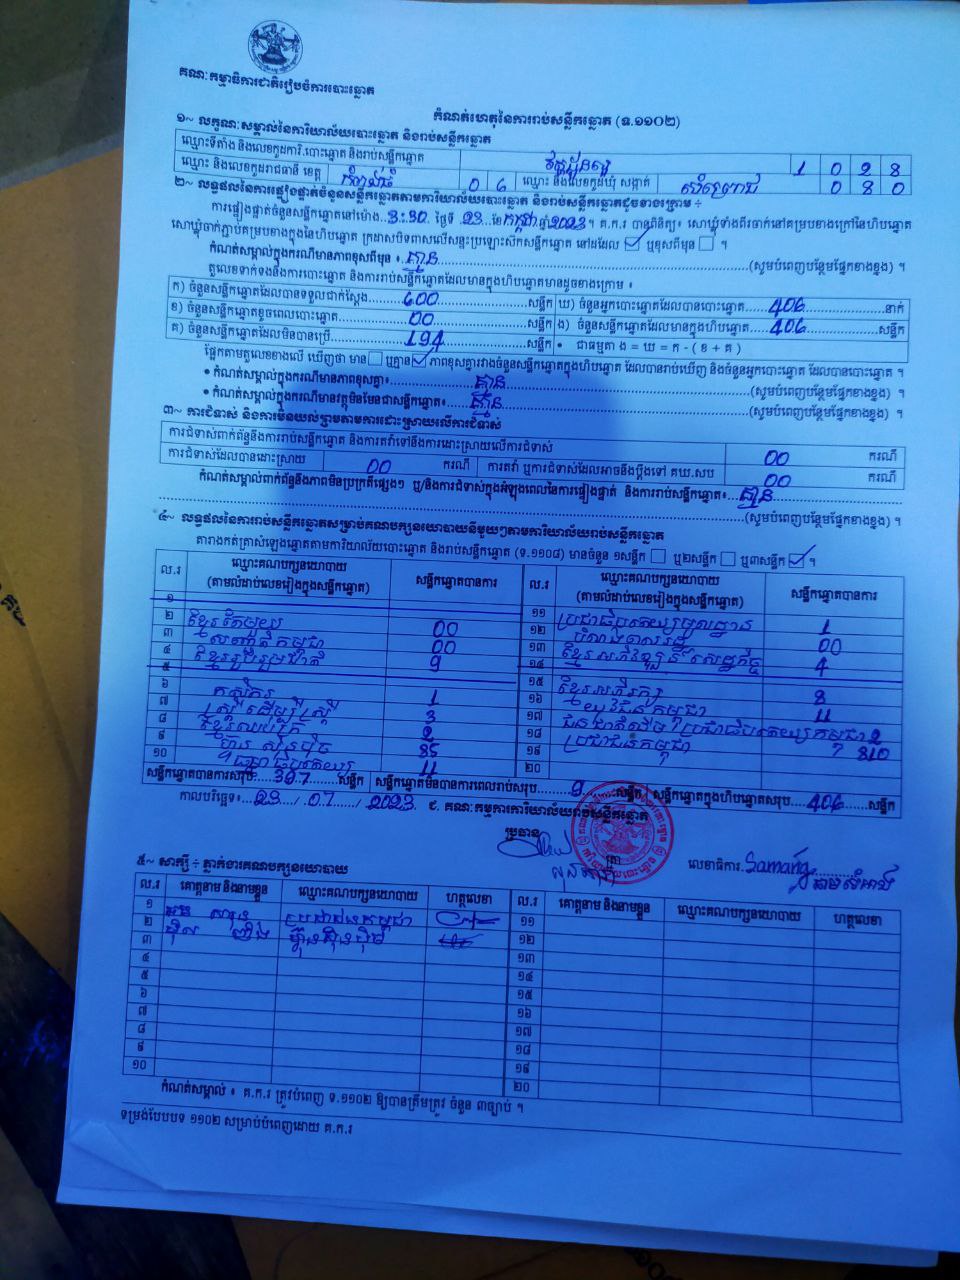 គណៈកម្មាធិការជាតិរៀបចំការបោះឆ្នោត
កំណត់ហេតុនៃការរាប់សន្លឹកឆ្នោត (ទ.១១០២)
១~ លក្ខណៈសម្គាល់នៃការិយាល័យបោះឆ្នោត និងរាប់សន្លឹកឆ្នោត
ឈ្មោះទីតាំង និងលេខកូដការិ.បោះឆ្នោត និងរាប់សន្លឹកឆ្នោត 1 0 2 8
ឈ្មោះ និងលេខកូដរាជធានី ខេត្ត កំពង់ធំ 0 6 ឈ្មោះ និងលេខកូដឃុំ សង្កាត់ 0 8 0
២~ លទ្ធផលនៃការផ្ទៀងផ្ទាត់ចំនួនសន្លឹកឆ្នោតតាមការិយាល័យបោះឆ្នោត និងរាប់សន្លឹកឆ្នោតដូចខាងក្រោម ÷
ការផ្ទៀងផ្ទាត់ចំនួនសន្លឹកឆ្នោតនៅម៉ោង 3:30 ថ្ងៃទី 23 ខែ កក្កដា ឆ្នាំ 2023 ។ គ.ក.រ បានពិនិត្យ៖ សោឃ្មុំទាំងពីរចាក់នៅគម្របខាងក្រៅនៃហិបឆ្នោត
សោឃ្មុំចាក់ភ្ជាប់គម្របខាងក្នុងនៃហិបឆ្នោត ក្រដាសបិទពាសលើសន្ទះប្រឡោះសឹកសន្លឹកឆ្នោត នៅដដែល ឬខុសពីមុន ។
កំណត់សម្គាល់ក្នុងករណីមានភាពខុសពីមុន ៖ គ្មាន (សូមបំពេញបន្ថែមផ្នែកខាងខ្នង) ។
តួលេខទាក់ទងនឹងការបោះឆ្នោត និងការរាប់សន្លឹកឆ្នោតដែលមានក្នុងហិបឆ្នោតមានដូចខាងក្រោម ៖
ក) ចំនួនសន្លឹកឆ្នោតដែលបានទទួលជាក់ស្តែង 600 សន្លឹក ឃ) ចំនួនអ្នកបោះឆ្នោតដែលបានបោះឆ្នោត 406 នាក់
ខ) ចំនួនសន្លឹកឆ្នោតខូចពេលបោះឆ្នោត 00 សន្លឹក ង) ចំនួនសន្លឹកឆ្នោតដែលមានក្នុងហិបឆ្នោត 406 សន្លឹក
គ) ចំនួនសន្លឹកឆ្នោតដែលមិនបានប្រើ 194 សន្លឹក • ជាធម្មតា ង = ឃ = ក - ( ខ + គ )
ផ្អែកតាមតួលេខខាងលើ ឃើញថា មាន ឬគ្មាន ភាពខុសគ្នារវាងចំនួនសន្លឹកឆ្នោតក្នុងហិបឆ្នោត ដែលបានរាប់ឃើញ និងចំនួនអ្នកបោះឆ្នោត ដែលបានបោះឆ្នោត ។
• កំណត់សម្គាល់ក្នុងករណីមានភាពខុសគ្នា៖ គ្មាន (សូមបំពេញបន្ថែមផ្នែកខាងខ្នង) ។
• កំណត់សម្គាល់ក្នុងករណីមានវត្ថុមិនមែនជាសន្លឹកឆ្នោត៖ គ្មាន (សូមបំពេញបន្ថែមផ្នែកខាងខ្នង) ។
៣~ ការជំទាស់ និងការមិនយល់ព្រមតាមការដោះស្រាយលើការជំទាស់
ការជំទាស់ពាក់ព័ន្ធនឹងការរាប់សន្លឹកឆ្នោត និងការតវ៉ាទៅនឹងការដោះស្រាយលើការជំទាស់ 00 ករណី
ការជំទាស់ដែលបានដោះស្រាយ 00 ករណី ការតវ៉ា ឬការជំទាស់ដែលអាចនឹងប្តឹងទៅ គឃ.សប 00 ករណី
កំណត់សម្គាល់ពាក់ព័ន្ធនឹងភាពមិនប្រក្រតីផ្សេងៗ ឬ/និងការជំទាស់ក្នុងអំឡុងពេលនៃការផ្ទៀងផ្ទាត់ និងការរាប់សន្លឹកឆ្នោត៖ គ្មាន
(សូមបំពេញបន្ថែមផ្នែកខាងខ្នង) ។
៤~ លទ្ធផលនៃការរាប់សន្លឹកឆ្នោតសម្រាប់គណបក្សនយោបាយនីមួយៗតាមការិយាល័យរាប់សន្លឹកឆ្នោត
តារាងកត់គ្រាសំឡេងឆ្នោតតាមការិយាល័យបោះឆ្នោត និងរាប់សន្លឹកឆ្នោត (ទ.១១០៨) មានចំនួន ១សន្លឹក ឬ២សន្លឹក ឬ៣សន្លឹក ។
ល.រ ឈ្មោះគណបក្សនយោបាយ (តាមលំដាប់លេខរៀងក្នុងសន្លឹកឆ្នោត) សន្លឹកឆ្នោតបានការ ល.រ ឈ្មោះគណបក្សនយោបាយ (តាមលំដាប់លេខរៀងក្នុងសន្លឹកឆ្នោត) សន្លឹកឆ្នោតបានការ
១
២ ខ្មែរតែមួយ 00
៣ សញ្ជាតិកម្ពុជា 00
៤ ខ្មែររួបរួមជាតិ 9
៥
៦ កសិករ 1
៧ ស្ត្រីដើម្បីស្ត្រី 3
៨ ខ្មែរឈប់ក្រ 2
៩ ហ៊្វុនស៊ិនប៉ិច 35
១០ ធម្មាធិបតេយ្យ 11
១១ ប្រជាធិបតេយ្យមូលដ្ឋាន 1
១២ 00
១៣ ខ្មែរអភិវឌ្ឍន៍សេដ្ឋកិច្ច 4
១៤
១៥ ខ្មែរអភិរក្ស 8
១៦ យុវជនកម្ពុជា 11
១៧ ជនជាតិដើមប្រជាធិបតេយ្យកម្ពុជា 2
១៨ ប្រជាជនកម្ពុជា 310
១៩
២០
សន្លឹកឆ្នោតបានការសរុប 397 សន្លឹក សន្លឹកឆ្នោតមិនបានការពេលរាប់សរុប 9 សន្លឹក សន្លឹកឆ្នោតក្នុងហិបឆ្នោតសរុប 406 សន្លឹក
កាលបរិច្ឆេទ៖ 23 / 07 / 2023 ជ. គណៈកម្មការការិយាល័យរាប់សន្លឹកឆ្នោត
ប្រធាន
ត្រា លេខាធិការ Samang
៥~ សាក្សី ÷ ភ្នាក់ងារគណបក្សនយោបាយ
ល.រ គោត្តនាម និងនាមខ្លួន ឈ្មោះគណបក្សនយោបាយ ហត្ថលេខា ល.រ គោត្តនាម និងនាមខ្លួន ឈ្មោះគណបក្សនយោបាយ ហត្ថលេខា
១ ប្រជាជនកម្ពុជា ១១
២ ហ៊្វុនស៊ិនប៉ិច ១២
៣ ១៣
៤ ១៤
៥ ១៥
៦ ១៦
៧ ១៧
៨ ១៨
៩ ១៩
១០ ២០
កំណត់សម្គាល់ ៖ គ.ក.រ ត្រូវបំពេញ ទ.១១០២ ឱ្យបានត្រឹមត្រូវ ចំនួន ៣ច្បាប់ ។
ទម្រង់បែបបទ ១១០២ សម្រាប់បំពេញដោយ គ.ក.រ